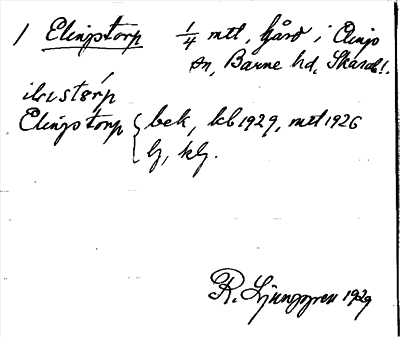 1 Elingstorp 1/4 mtl, gård i Elings
sn, Barne hd, Skarab l.
Elingstorp { bek, kb 1929, mtl 1926
R. Ljunggren 1929